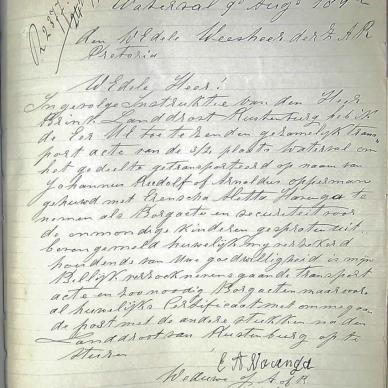 Waterval 9 Aug
Aan WEdele Weesheer der Z A R
Pretoria
WEdele Heer!
Ingevolge Instruktie van den Heer
Brink Landdrost Rustenburg heb ik
de Eer UE toe te zenden gezamelijk trans
port acte van de plaats Waterval om
het gedeelte getransporteerd op naam van
Johannes Rudolf of Arnoldus Opperman
gehuwd met Aletta te
nemen als Borgacte en securiteit voor
de onmondige kinderen gesproten uit
bovengemeld huwelijk my verzekerd
houdende van Uwe goedwilligheid is mijn
Billijk verzoek nevensgaande transport
acte en zoo noodig Borgacten maar voor
al huwelijks Certificaat met ommegaan
de post met de andere stukken na den
Landdrost van Rustenburg op te
sturen
Weduwe